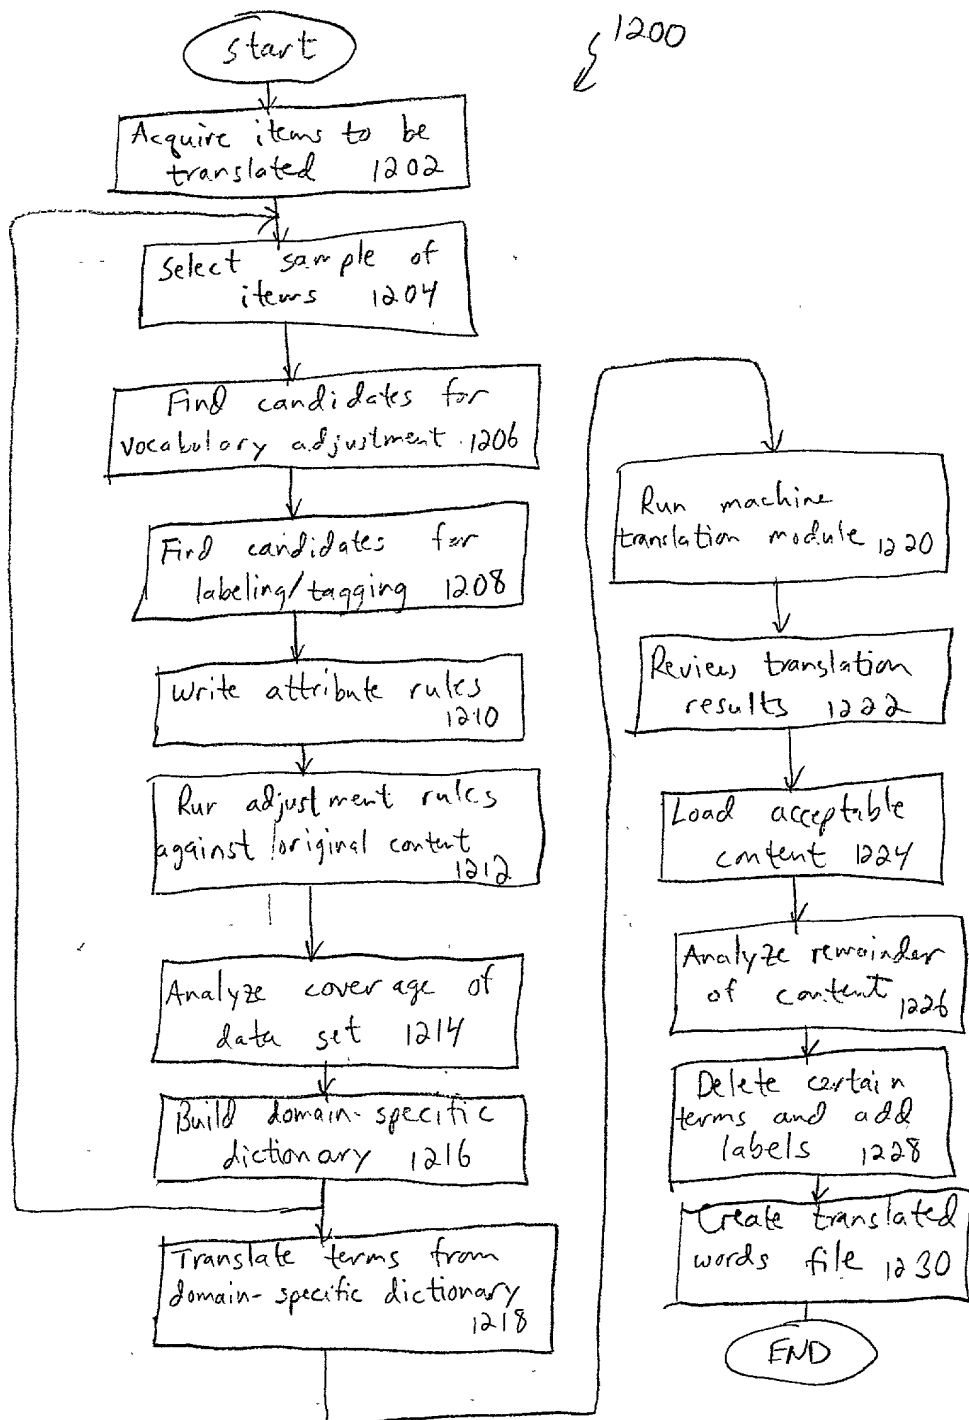 start
1200
Acquire items to be
translated 1202
Select sample of
items 1204
Find candidates for
vocabulary adjustment 1206
Find candidates for
labeling/tagging 1208
Write attribute rules
1210
Run adjustment rules
against original content
1212
Analyze coverage of
data set 1214
Build domain-specific
dictionary 1216
Translate terms from
domain-specific dictionary
1218
Run machine
translation module 1220
Review translation
results 1222
Load acceptable
content 1224
Analyze remainder
of content 1226
Delete certain
terms and add
labels 1228
Create translated
words file 1230
END